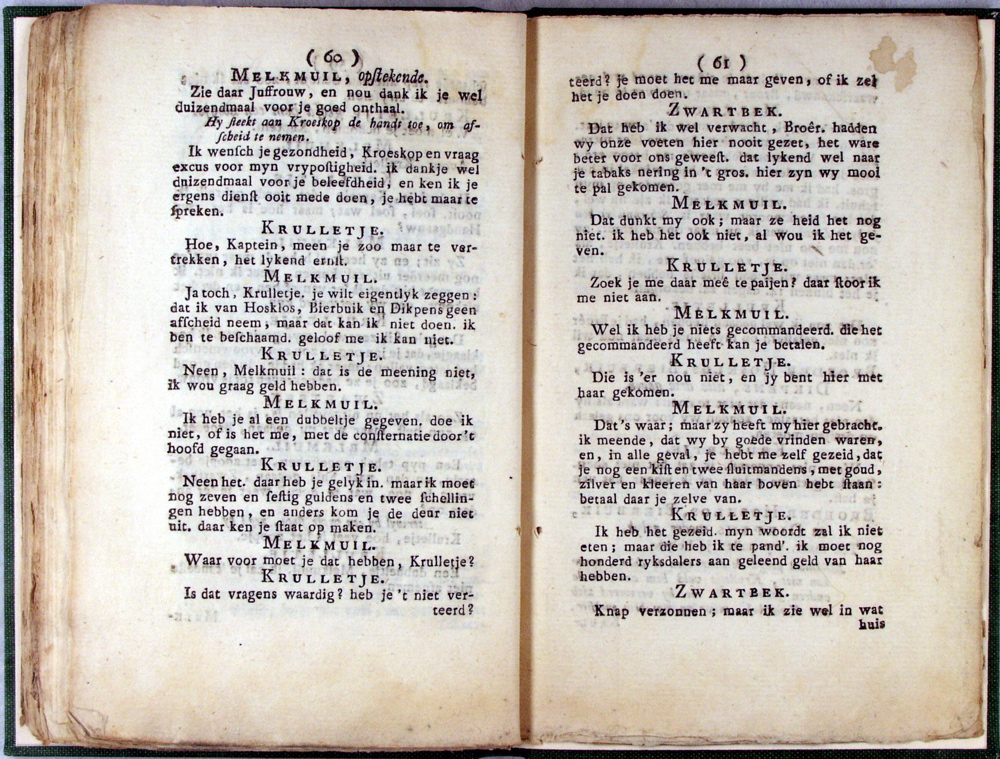 ( 60 )
MELKMUIL, opſtekende.
Zie daar Juffrouw, en nou dank ik je wel
duizendmaal voor je goed onthaal.
Hy ſteekt aan Kroeskop de handt toe, om af-
ſcheid te nemen.
Ik wenſch je gezondheid, Kroeskop en vraag
excus voor myn vrypoſtigheid. ik dankje wel
duizendmaal voor je beleefdheid, en ken ik je
ergens dienſt ooit mede doen, je hebt maar te
ſpreken.
KRULLETJE.
Hoe, Kaptein, meen je zoo maar te ver-
trekken, het lykend ernſt.
MELKMUIL.
Ja toch, Krulletje. je wilt eigentlyk zeggen:
dat ik van Hosklos, Bierbuik en Dikpens geen
afſcheid neem, maar dat kan ik niet doen. ik
ben te beſchaamd. geloof me ik kan niet.
KRULLETJE.
Neen, Melkmuil: dat is de meening niet,
ik wou graag geld hebben.
MELKMUIL.
Ik heb je al een dubbeltje gegeven, doe ik
niet, of is het me, met de conſternatie door't
hoofd gegaan.
KRULLETJE.
Neen het. daar heb je gelyk in. maar ik moet
nog zeven en ſeſtig guldens en twee ſchellin-
gen hebben, en anders kom je de deur niet
uit. daar ken je ſtaat op maken.
MELKMUIL.
Waar voor moet je dat hebben, Krulletje?
KRULLETJE.
Is dat vragens waardig? heb je 't niet ver-
teerd?
( 61 )
teerd? je moet het me maar geven, of ik zel
het je doen doen.
ZWARTBEK.
Dat heb ik wel verwacht, Broêr. hadden
wy onze voeten hier nooit gezet, het ware
beter voor ons geweeſt. dat lykend wel naar
je tabaks nering in 't gros. hier zyn wy mooi
te pal gekomen.
MELKMUIL.
Dat dunkt my ook; maar ze heid het nog
niet. ik heb het ook niet, al wou ik het ge-
ven.
KRULLETJE.
Zoek je me daar meê te paijen? daar ſtoor ik
me niet aan.
MELKMUIL.
Wel ik heb je niets gecommandeerd. die het
gecommandeerd heeft kan je betalen.
KRULLETJE.
Die is 'er nou niet, en jy bent hier met
haar gekomen.
MELKMUIL.
Dat's waar; maar zy heeft my hier gebracht.
ik meende, dat wy by goede vrinden waren,
en, in alle geval, je hebt me zelf gezeid, dat
je nog een kiſt en twee ſluitmandens, met goud,
zilver en kleeren van haar boven hebt ſtaan:
betaal daar je zelve van.
KRULLETJE.
Ik heb het gezeid. myn woordt zal ik niet
eten; maar die heb ik te pand'. ik moet nog
honderd ryksdalers aan geleend geld van haar
hebben.
ZWARTBEK.
Knap verzonnen; maar ik zie wel in wat
huis